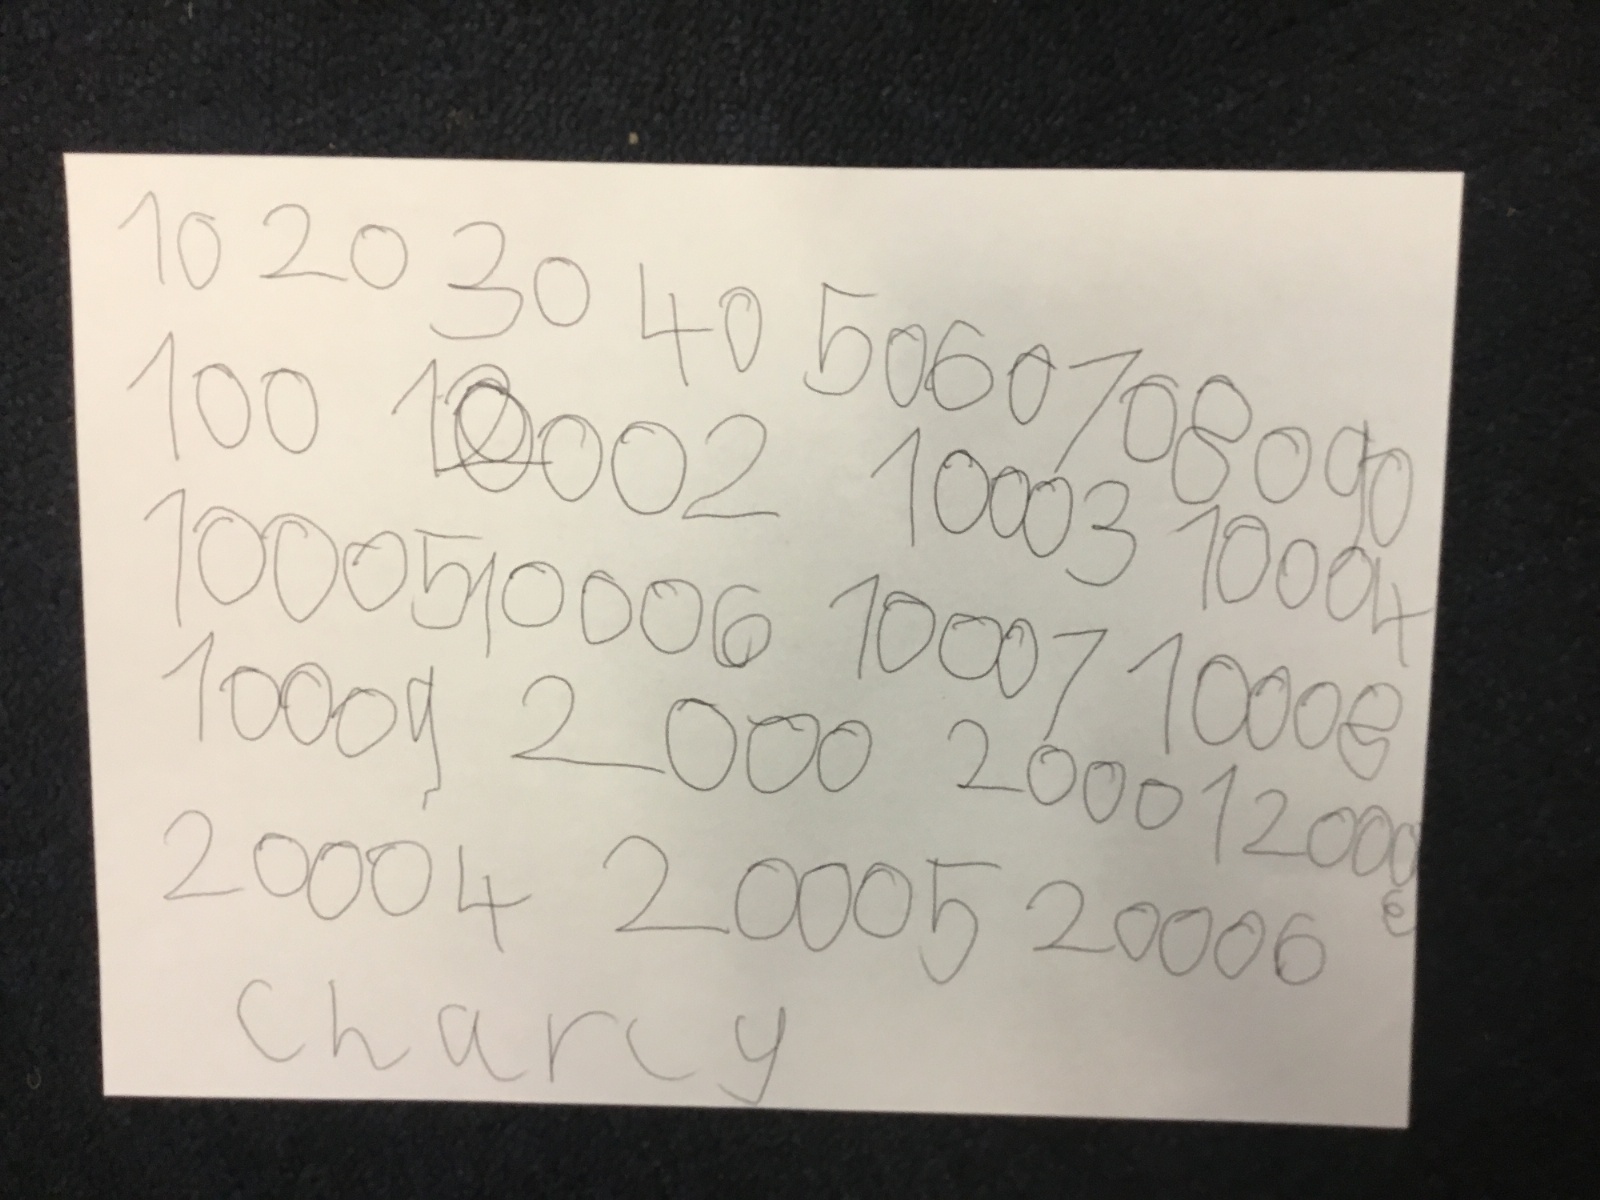 10 20 30 40 50 60 70 80 90
100 10002 10003 10004
10005 10006 10007 10008
10009 2000 20001 2000
20004 20005 20006
charcy